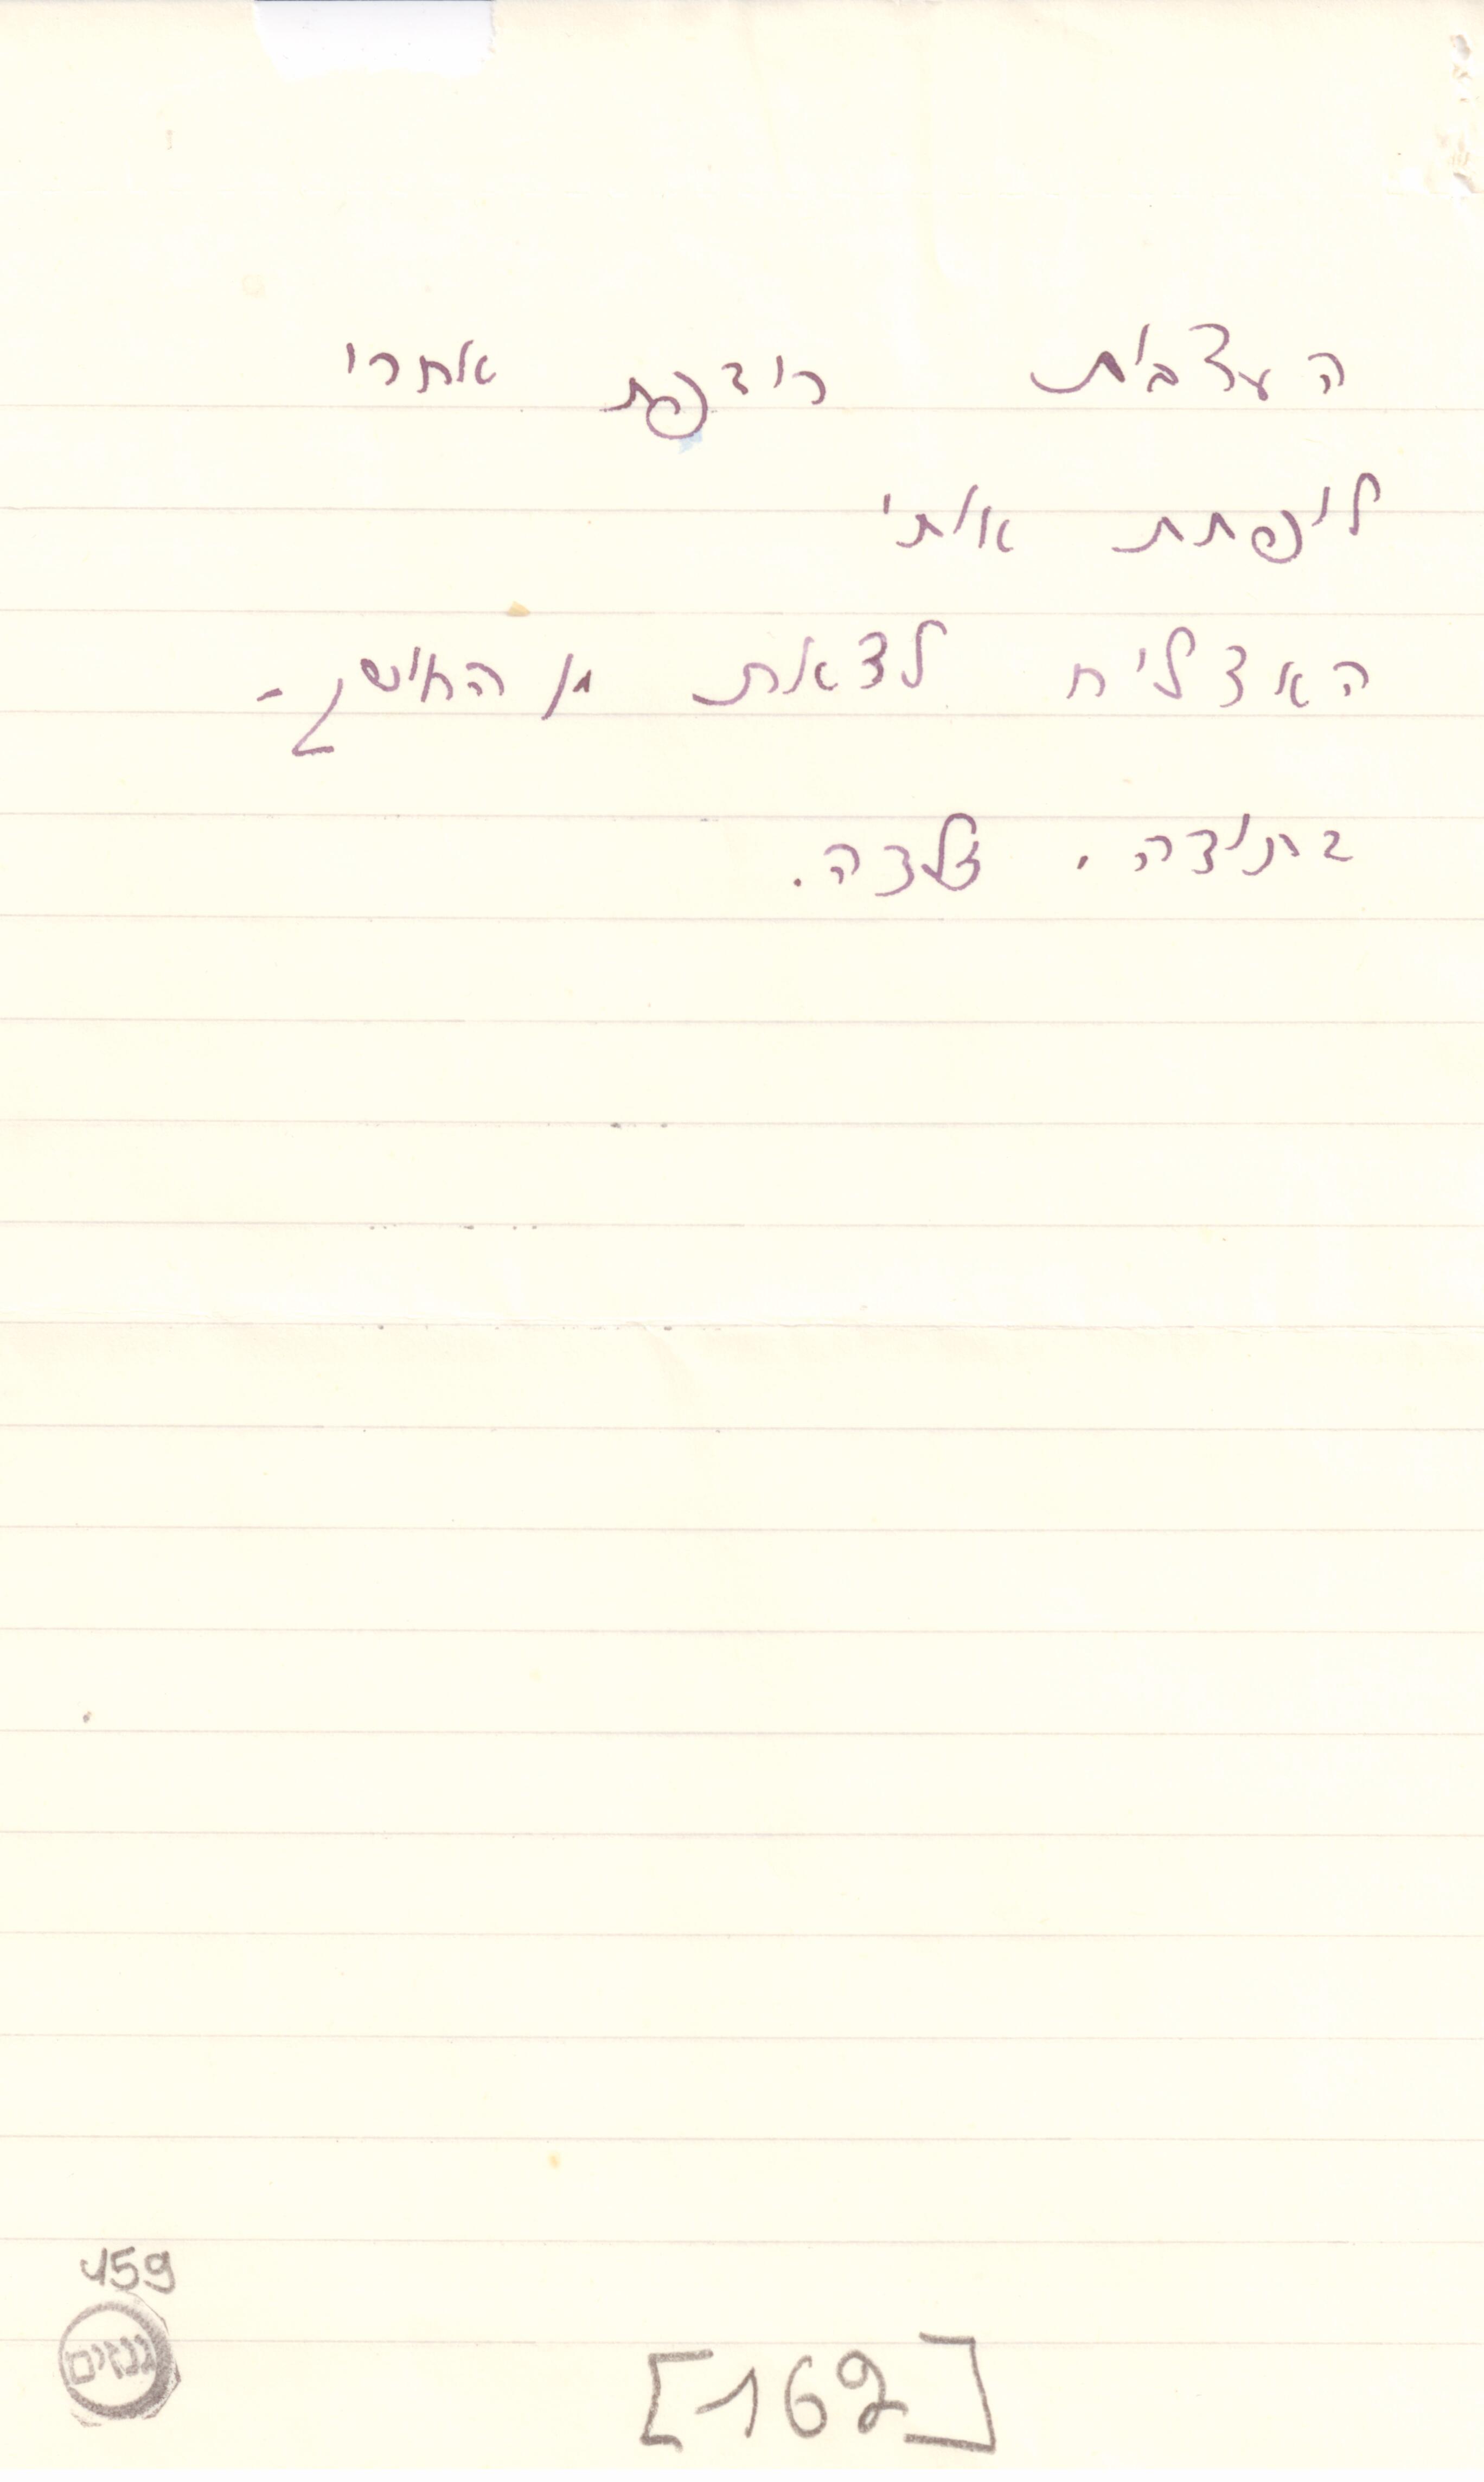 העצבות רודפת אחרי
לופתת אותי
האצליח לצאת מן החושך -
בתודה, זלדה.
459
גנזים
[162]